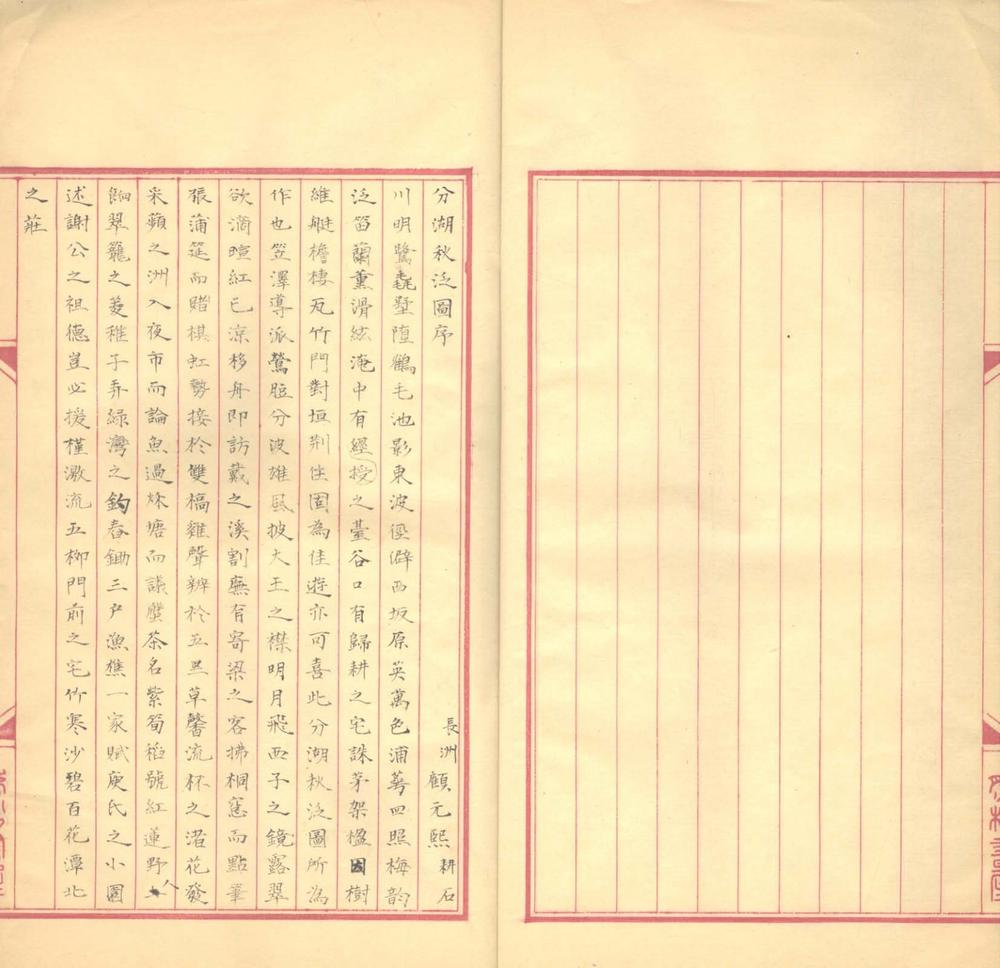 分湖秋泛圖序
長洲顧元熙耕石
川明鷺毳墅墮鶴毛池影東波徑僻西坂原英萬色浦蕚四照梅韵
泛笛蘭薰滑絃淹中有經授之臺谷口有歸耕之宅誅茅架楹因樹
維艇檐棲瓦竹門對垣荆住固為佳遊亦可喜此分湖秋泛圖所為
作也笠澤導派鶯脰分波雄風披大王之襟明月飛西子之鏡露翠
欲滴暄紅已涼移舟即訪戴之溪割廡有寄梁之客拂桐窻而點筆
張蒲筵而賭棋虹勢接於雙槗雞聲辨於五里草馨流杯之渚花發
采蘋之洲入夜市而論魚過秌塘而議蟹茶名紫筍稻號紅蓮野人
餉翠籠之菱稚子弄緑灣之釣春鋤三户漁樵一家賦庾氏之小園
述謝公之祖德豈必援槿激流五柳門前之宅竹寒沙碧百花潭北
之莊